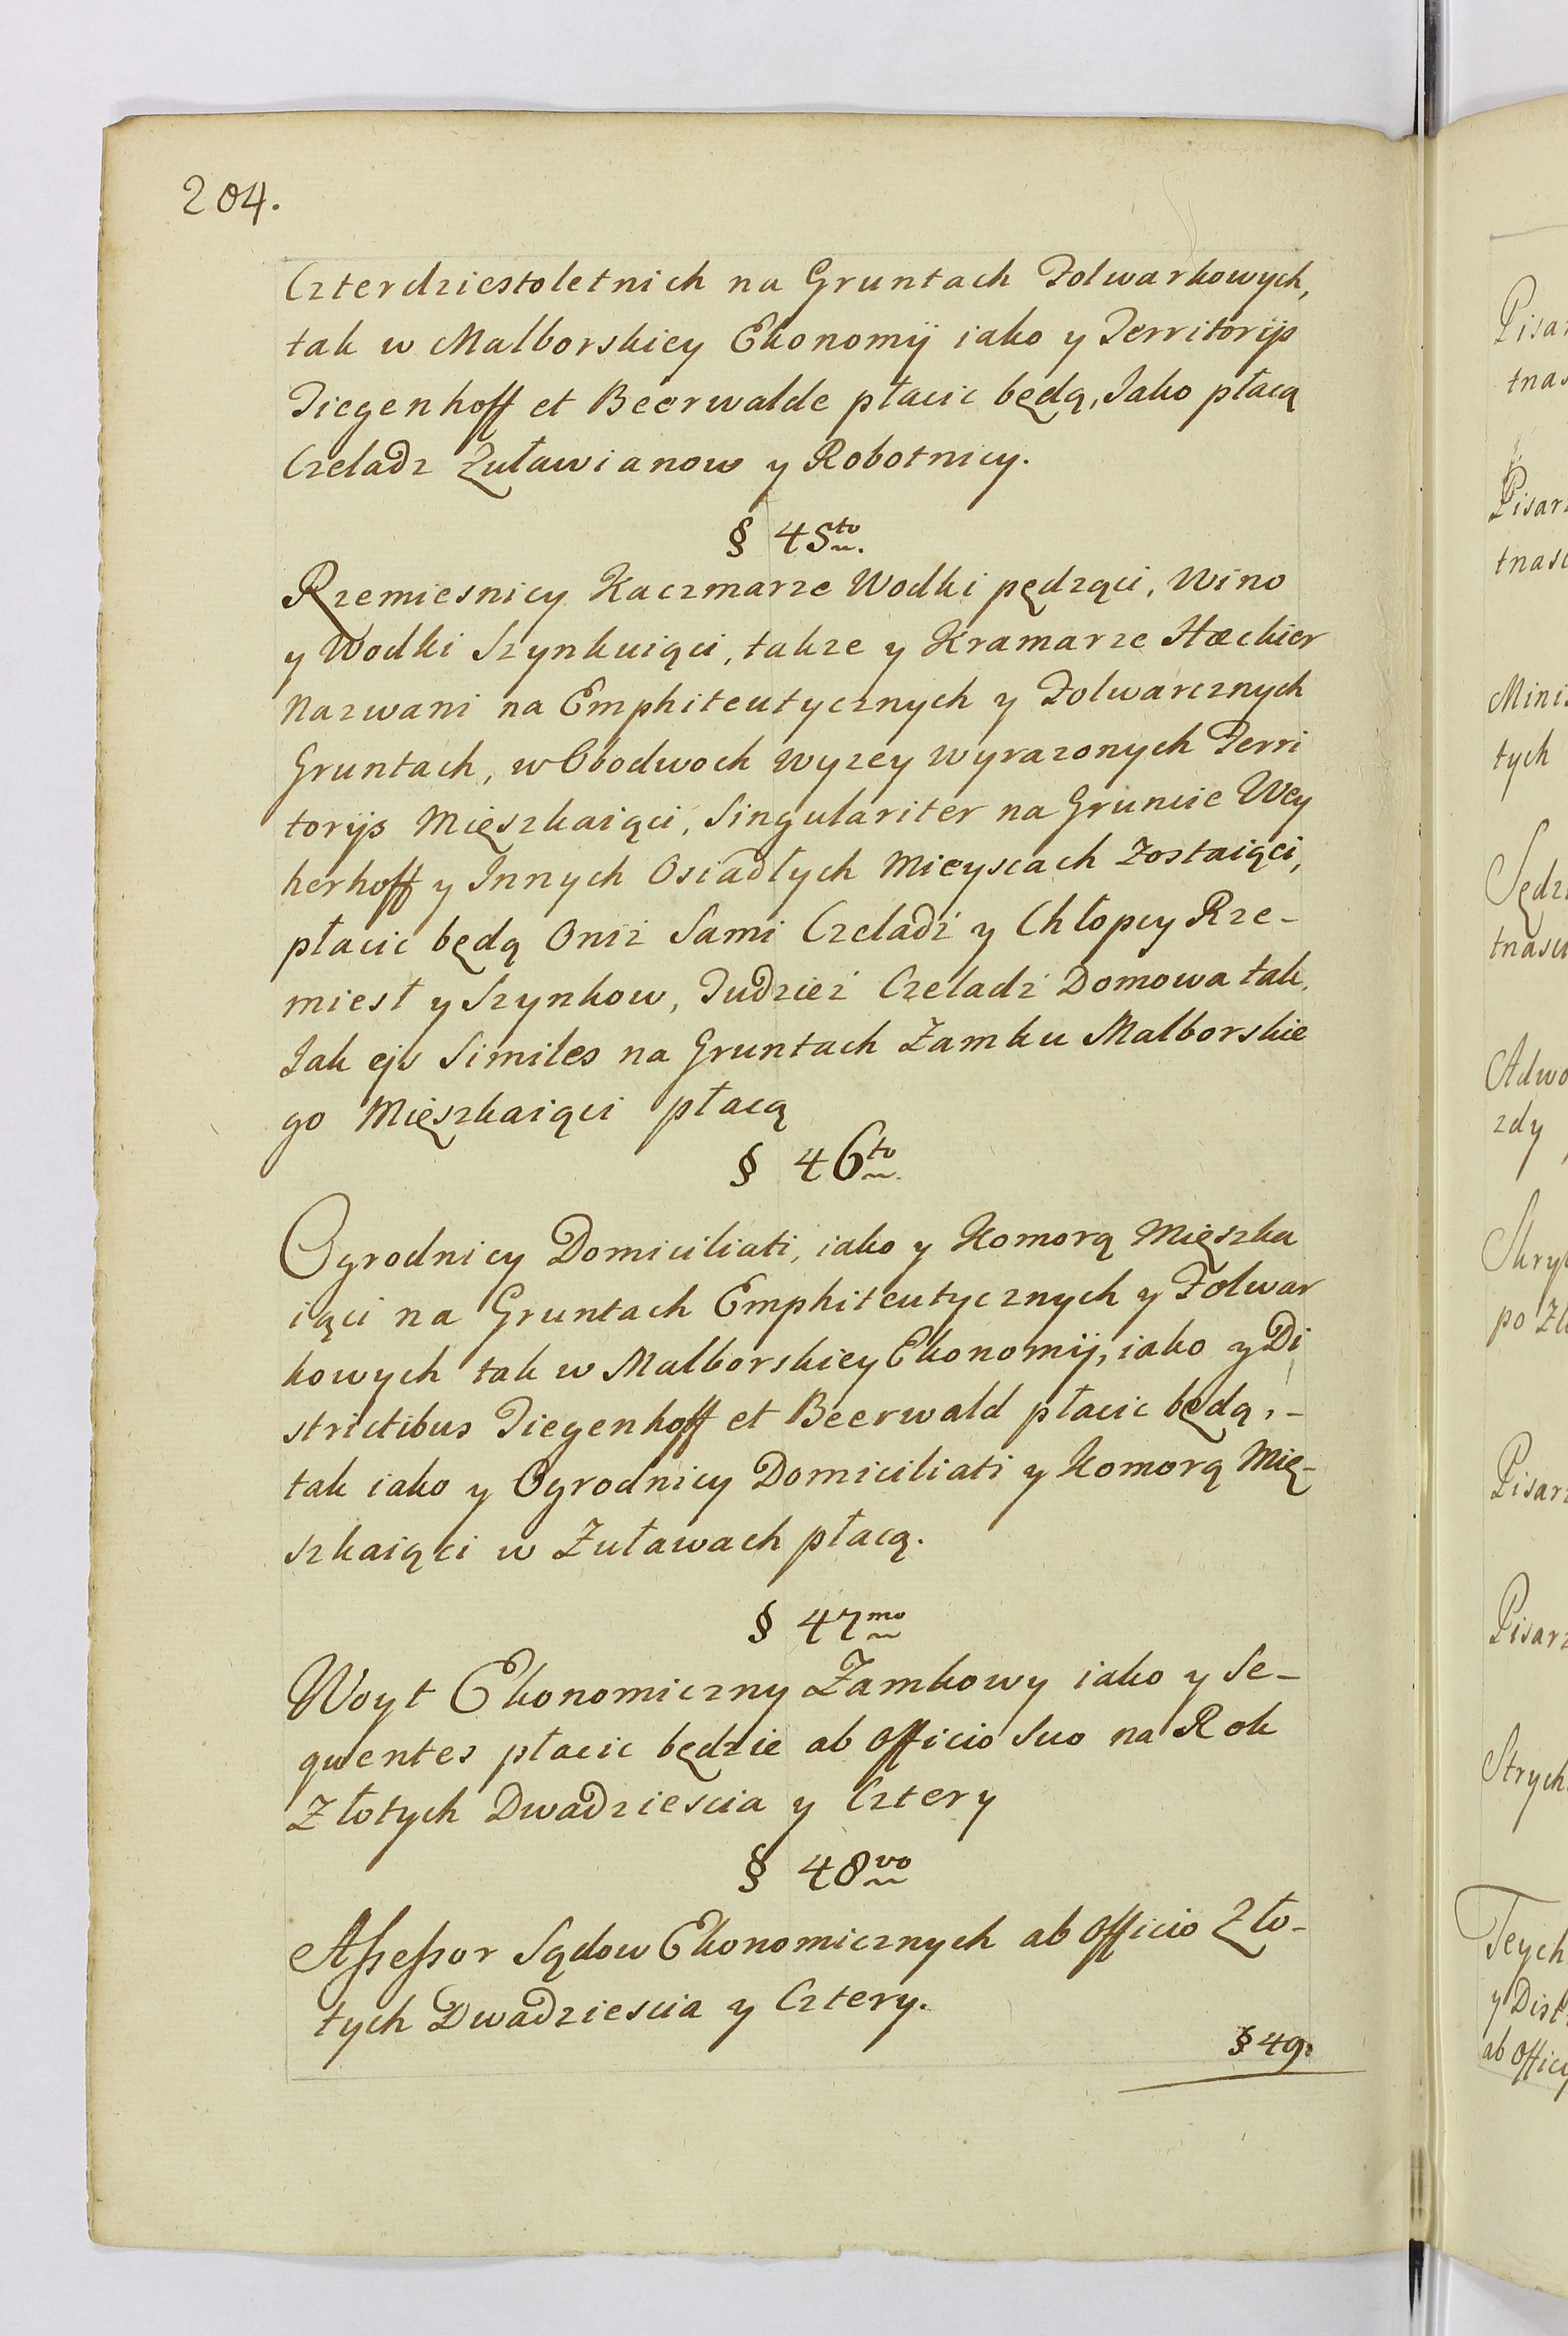 204.
Czterdziestoletnich na Gruntach Folwarkowych,
tak w Malborskiey Ekonomij iako y Territorijs
Tiegenhoff et Beerwalde płacic będą, Jako płacą
Czeladz Zuławianow y Robotnicy.
§ 45to.
Rzemiesnicy Kaczmarze Wodki pędzący, Wino
y Wodki Szynkuiąci, takze y Kramarze Hæckier
Nazwani na Emphiteutycznych y Folwarcznych
Gruntach, w Obodwoch wyzey wyrazonych Terri
torijs Mięszkaiąci, Singulariter na Gruncie Wey
herhoff y Innych Osiadłych Mieyscach zostaiąci,
płacic będą Oniz Sami Czeladź y Chłopcy Rze-
miesł y Szynkow, Tudzież Czeladź Domowa tak,
Jak ejs Similes na Gruntach Zamku Malborskie
go Mięszkaiąci płacą
§ 46to.
Ogrodnicy Domiciliati, iako y Komorą Mięszka
iąci na Gruntach Emphiteutycznych y Folwar
kowych tak w Malborskiey Ekonomij, iako y Di
strictibus Tiegenhoff et Beerwald płacic będą, -
tak iako y Ogrodnicy Domiciliati y Komorą Mię-
szkaiąci w Zuławach płacą.
§ 47mo
Woyt Ekonomiczny Zamkowy iako y Se-
quentes płacic będzie ab Officio Suo na Rok
Złotych Dwadziescia y Cztery
§ 48vo
Assessor Sądow Ekonomicznych ab Officio Zło-
tych Dwadziescia y Cztery.
§ 49.
Pisar
tnas
Pisarz
tnasc
Minis
tych
Sędzi
tnasci
Adwo
zdy
po Zł
Pisarz
Pisarz
Strych
Teych
y Dist
ab Offici